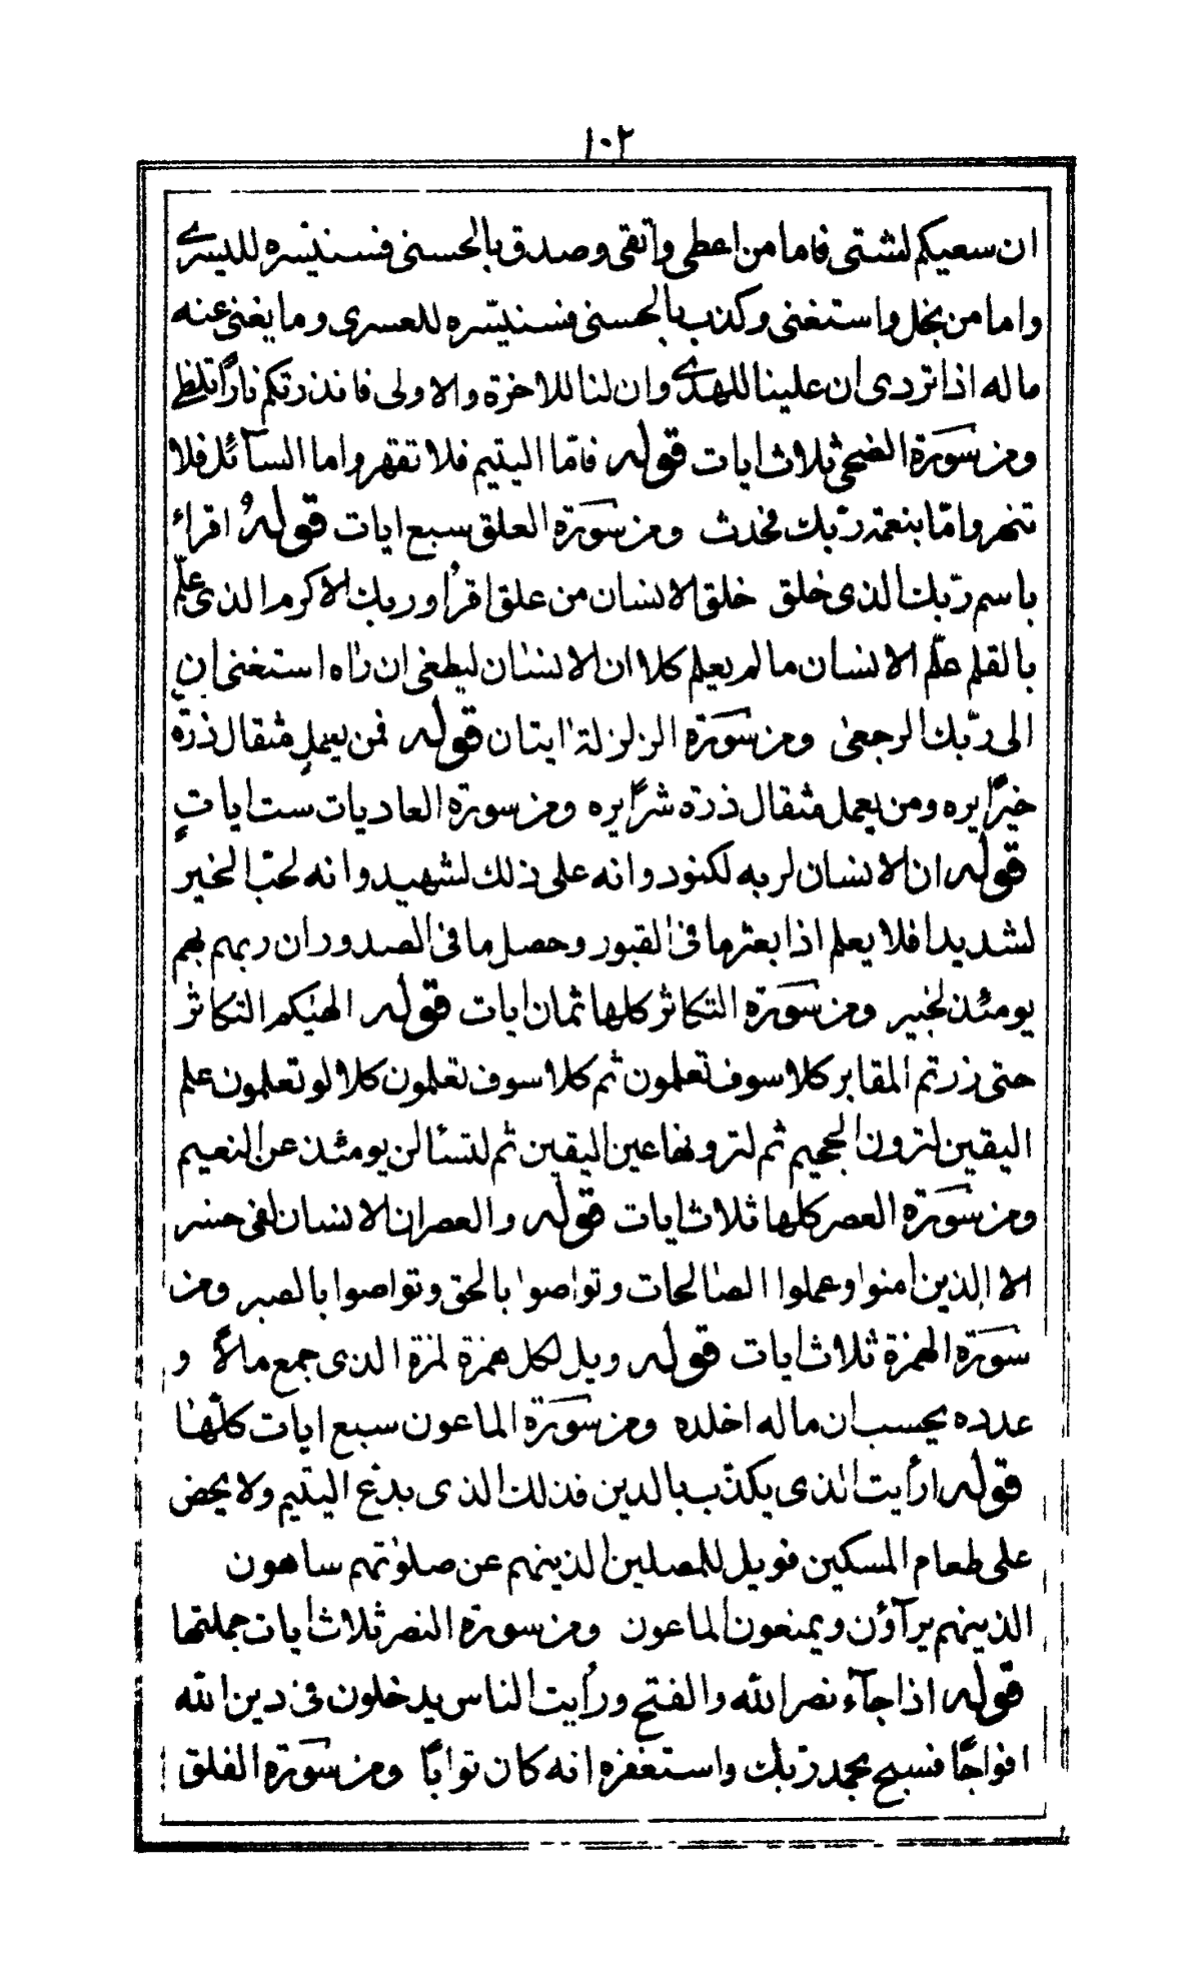 ١٠٢
ان سعيكم لشتى فاما من اعطى واتقى وصدق بالحسنى فسنيسّره لليسرى
واما من بخل واستغنى وكذب بالحسنى فسنيسّره للعسرى وما يغنى عنه
ماله اذا تردى ان علينا للهدى وان لنا للاخرة والاولى فانذرتكم ناراً تلظى
ومن سورة الضحى ثلاث ايات قوله فامّا اليتيم فلا تقهر واما السآئل فلا
تنهر وامّا بنعمة ربّك فحدث ومن سورة العلق سبع ايات قولهُ اقراء
باسم ربّك الذى خلق خلق الانسان من علق اقرأ وربك الاكرم الذى علّم
بالقلم علّم الانسان مالم يعلم كلا ان الانسان ليطغى ان رٰاه استغنى ان
الى ربّك الرجعىٰ ومن سورة الزلزلة ايتان قوله فمن يعمل مثقال ذرّة
خيراً يره ومن يعمل مثقال ذرة شراً يره ومن سورة العاديات ست اياتٍ
قوله ان الانسان لربه لكنود وانه على ذلك لشهيد وانه لحبّ الخير
لشديد افلا يعلم اذا بعثر ما فى القبور وحصل ما فى الصدور ان ربهم بهم
يومئذ لخبير ومن سورة التكاثر كلها ثمان ايات قوله الهيٰكم التكاثر
حتى زرتم المقابر كلا سوف تعلمون ثم كلا سوف تعلمون كلا لو تعلمون علم
اليقين لترون الجحيم ثم لترونها عين اليقين ثم لتسئالن يومئذ عن النعيم
ومن سورة العصر كلها ثلاث ايات قوله والعصر ان الانسان لفى خسر
الا الذين امنوا وعملوا الصٰالحات وتواصوا بالحق وتواصوا بالصبر ومن
سورة الهمزة ثلاث ايات قوله ويل لكل همزة لمزة الذى جمع مالاً و
عدده يحسب ان ماله اخلده ومن سورة الماعون سبع ايات كلّهٰا
قوله ارأيت الذى يكذّب بالدين فذلك الذى يدع اليتيم ولا يحض
على طعام المسكين فويل للمصلين الذينهم عن صلوٰتهم ساهون
الذينهم يرآؤن ويمنعون الماعون ومن سورة النصر ثلاث ايات جملتها
قوله اذا جآء نصر الله والفتح ورأيت الناس يدخلون فى دين الله
افواجًا فسبح بحمد ربّك واستغفره انه كان توابًا ومن سورة الفلق